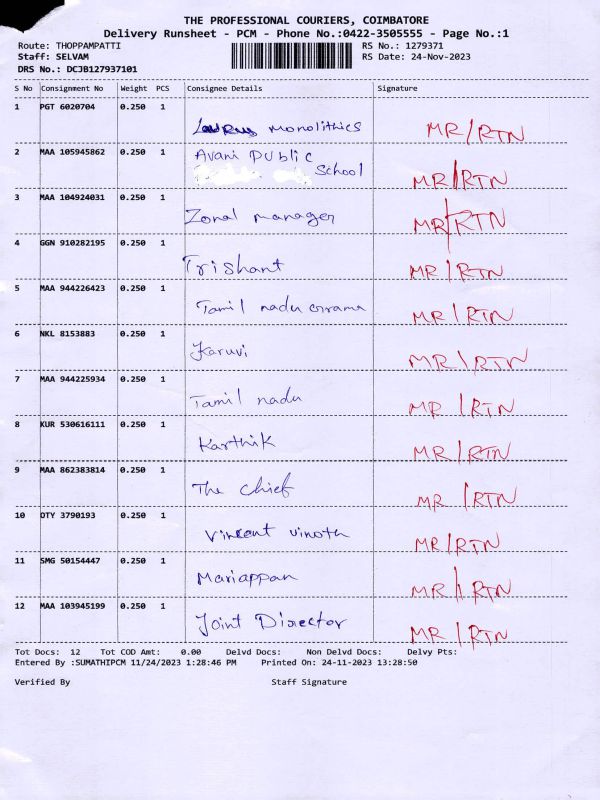 THE PROFESSIONAL COURIERS, COIMBATORE
Delivery Runsheet - PCM - Phone No.:0422-3505555 - Page No.:1
Route: THOPPAMPATTI RS No.: 1279371
Staff: SELVAM RS Date: 24-Nov-2023
DRS No.: DCJB127937101
S No Consignment No Weight PCS Consignee Details Signature
1 PGT 6020704 0.250 1
Monolithics MR/RTN
2 MAA 105945862 0.250 1 Avani Public
School MR/RTN
3 MAA 104924031 0.250 1
Zonal manager MR/RTN
4 GGN 910282195 0.250 1
Trishant MR/RTN
5 MAA 944226423 0.250 1
Tamil nadu MR/RTN
6 NKL 8153883 0.250 1
Karuvi MR/RTN
7 MAA 944225934 0.250 1
Tamil nadu MR/RTN
8 KUR 530616111 0.250 1
Karthik MR/RTN
9 MAA 862383814 0.250 1
The Chief MR/RTN
10 OTY 3790193 0.250 1
Vincent vinoth MR/RTN
11 SMG 50154447 0.250 1
Mariappan MR/RTN
12 MAA 103945199 0.250 1
Joint Director MR/RTN
Tot Docs: 12 Tot COD Amt: 0.00 Delvd Docs: Non Delvd Docs: Delvy Pts:
Entered By :SUMATHIPCM 11/24/2023 1:28:46 PM Printed On: 24-11-2023 13:28:50
Verified By Staff Signature